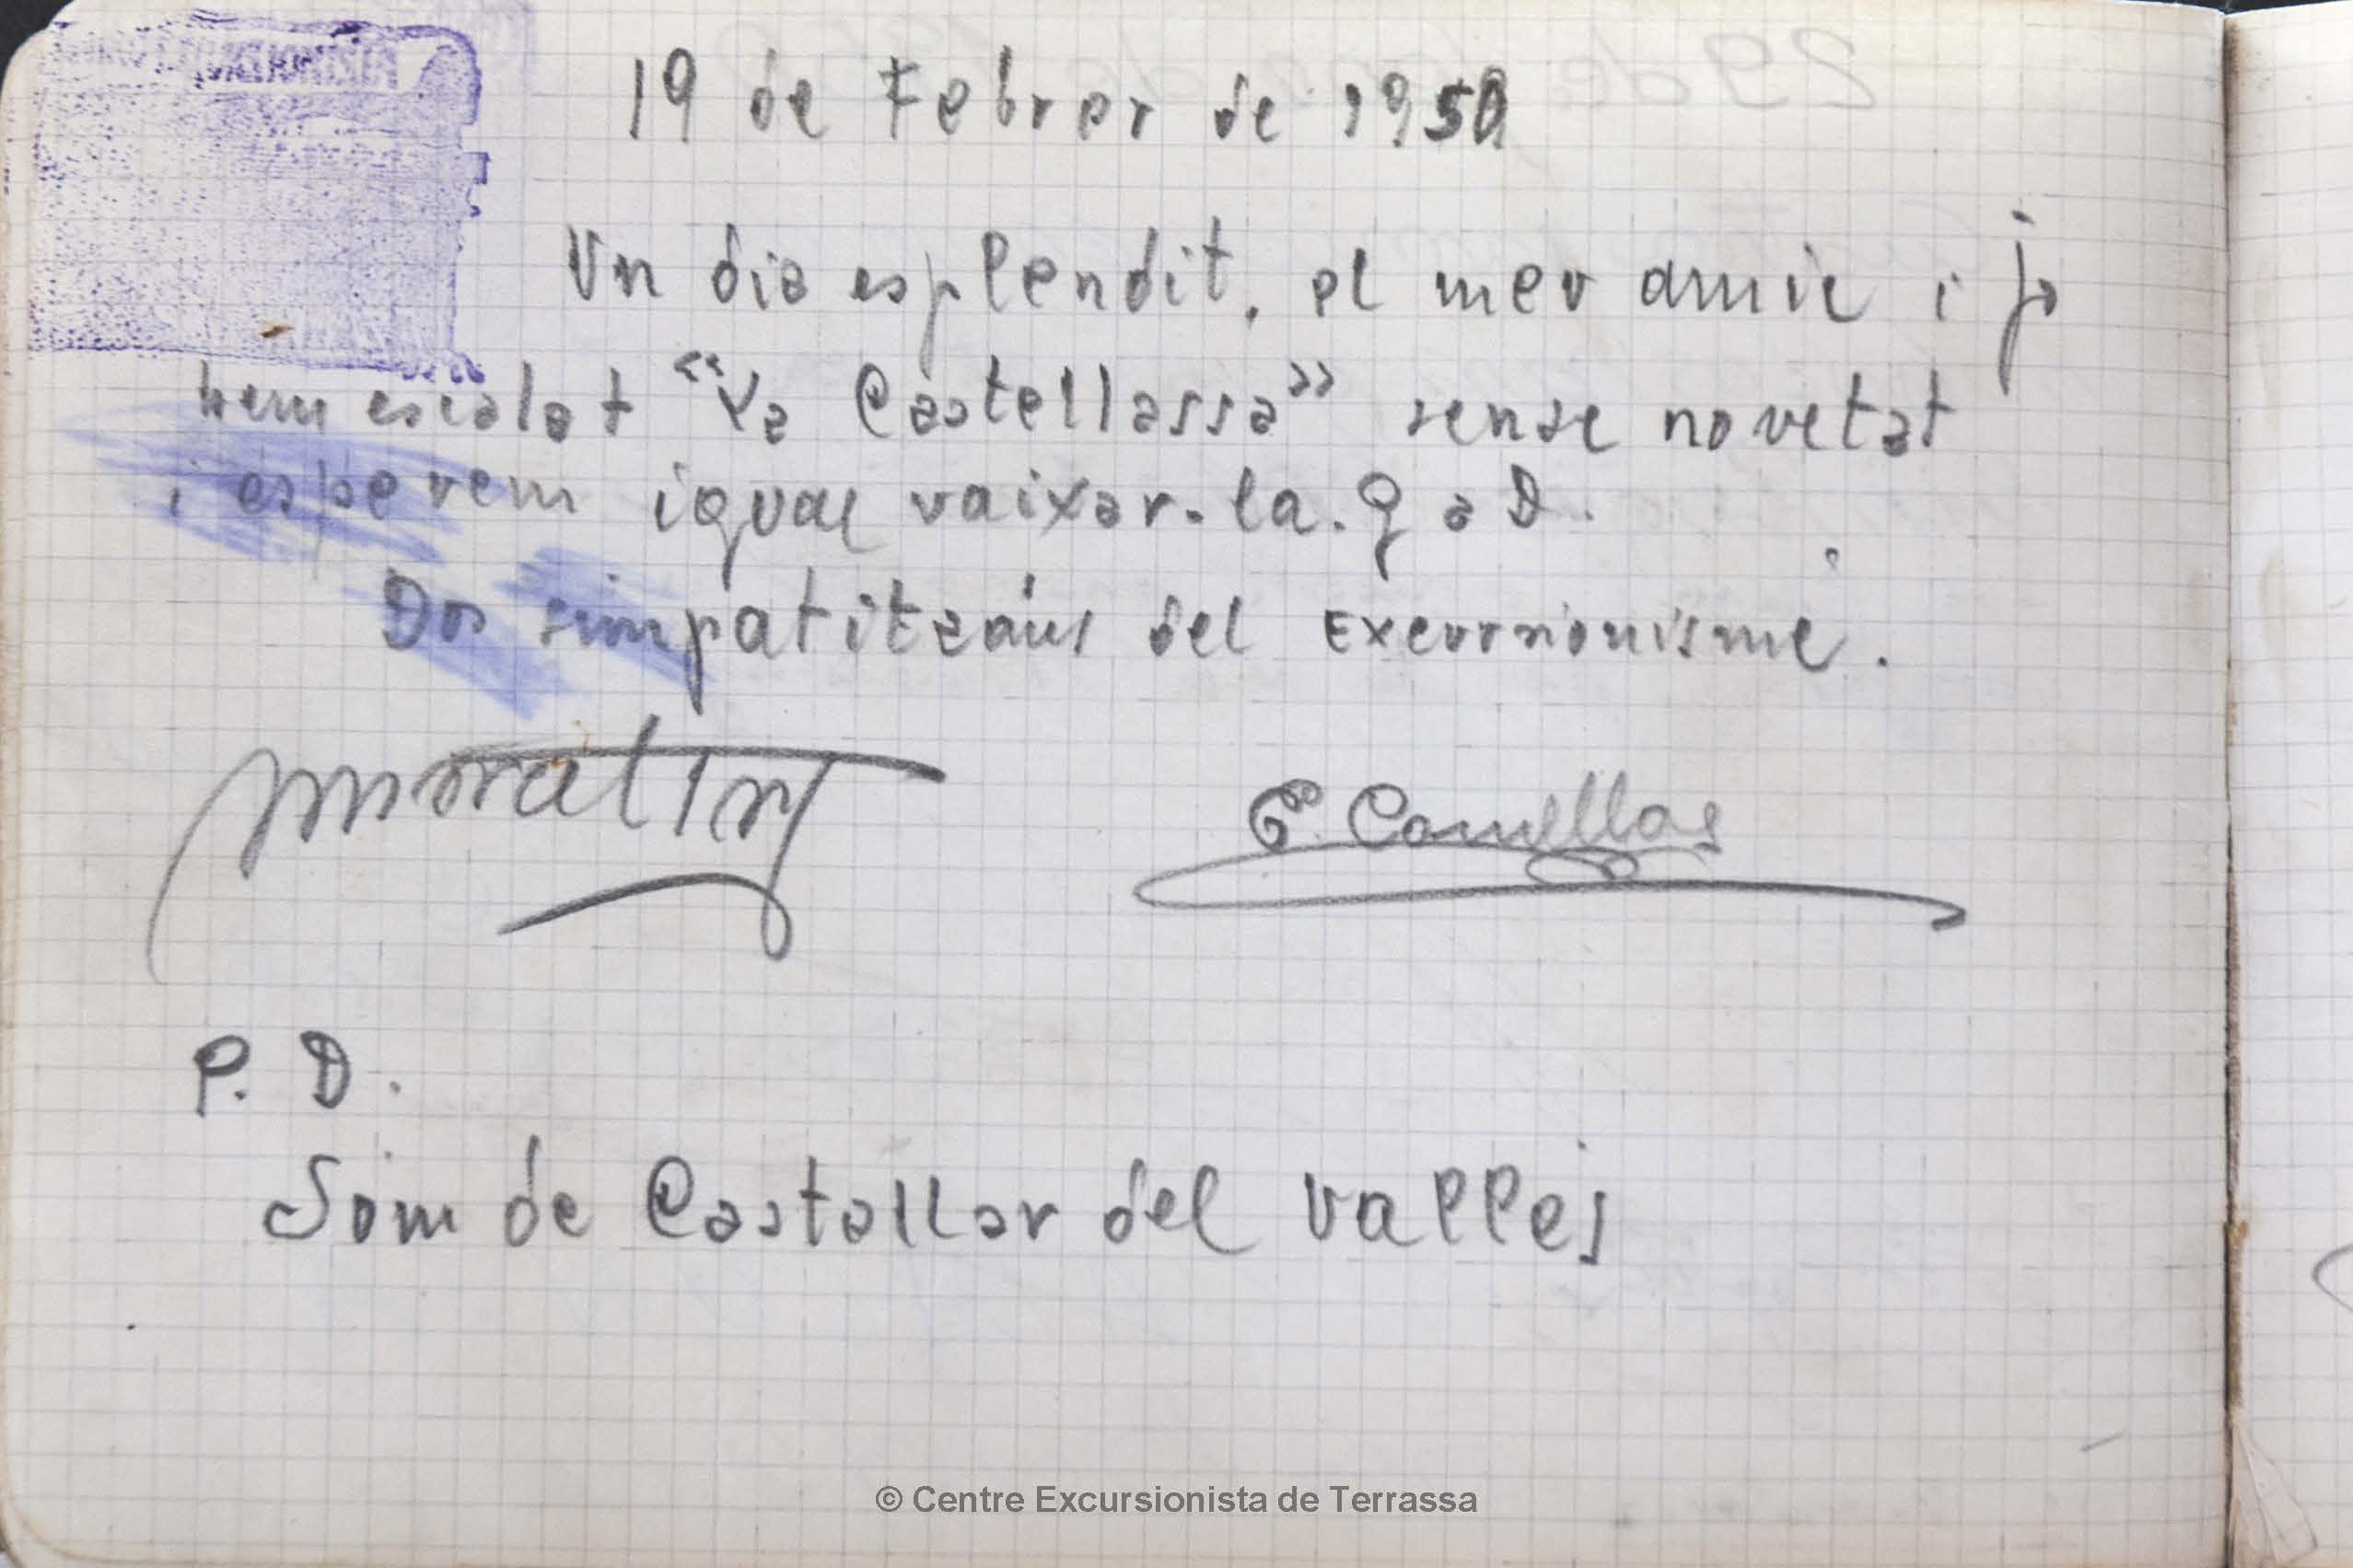 19 de Febrer de 1950
Un dia esplendit, el meu amic i jo
hem escalat "La Castellassa" sense novetat
i esperem igual vaixar-la. G a D.
Dos simpatitzans del Excursionisme.
E. Comellas
P. D.
Som de Castallar del Valles
© Centre Excursionista de Terrassa